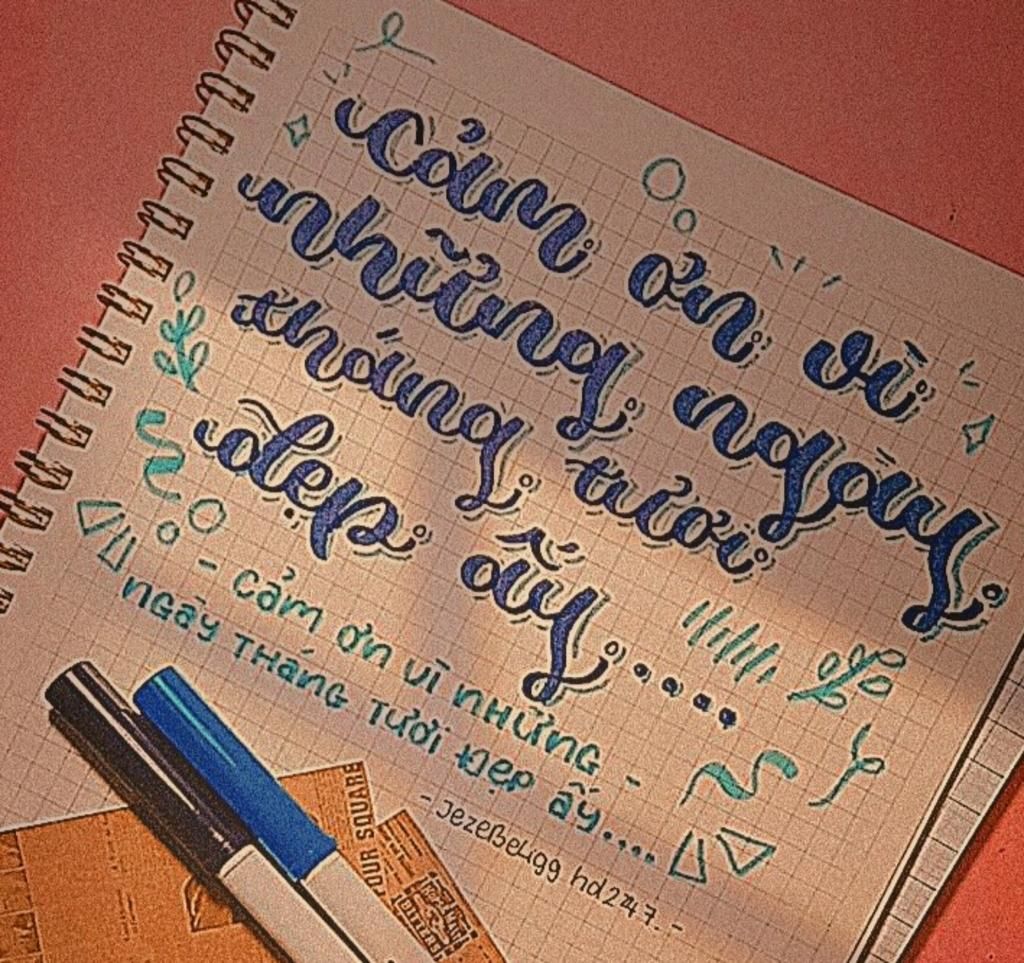 Cảm ơn vì
những ngày
tháng tươi
đẹp ấy....
- cảm ơn vì những -
ngày tháng tươi đẹp ấy....
- Jezebelgg hd247. -
OUR SQUARE